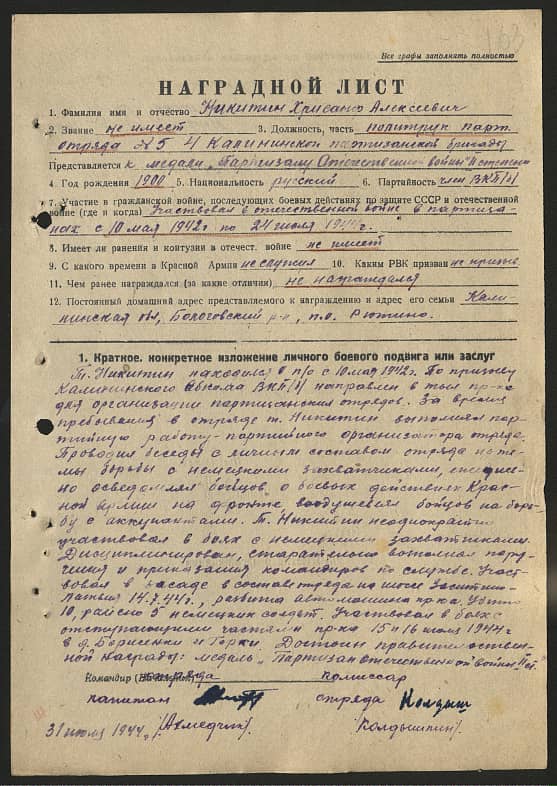 Все графы заполнять полностью
НАГРАДНОЙ ЛИСТ
1. Фамилия имя и отчество Никитин Хрисанф Алексеевич
2. Звание не имеет 3. Должность, часть политрук парт.
отряда № 5 4 Калининской партизанской бригады
Представляется к медали „Партизану Отечественной войны" II степени
4. Год рождения 1900 5. Национальность русский 6. Партийность член ВКП(б)
7. Участие в гражданской войне, последующих боевых действиях по защите СССР и отечественной
войне (где и когда) Участвовал в отечественной войне в партиза-
нах с 10 мая 1942 г. по 24 июля 1944 г.
8. Имеет ли ранения и контузии в отечест. войне не имеет
9. С какого времени в Красной Армии не служил 10. Каким РВК призван не призыв.
11. Чем ранее награждался (за какие отличия) не награждался
12. Постоянный домашний адрес представляемого к награждению и адрес его семьи Кали-
нинская обл, Бологовский р-н, п.о. Рютино.
1. Краткое, конкретное изложение личного боевого подвига или заслуг
Т. Никитин находился в п/о с 10 мая 1942 г. По призыву
Калининского Обкома ВКП(б) направлен в тыл пр-ка
для организации партизанских отрядов. За время
пребывания в отряде т. Никитин выполнял пар-
тийную работу - партийного организатора отряда.
Проводил беседы с личным составом отряда на те-
мы борьбы с немецкими захватчиками,
но осведомлял бойцов, о боевых действиях Крас-
ной армии на фронте воодушевлял бойцов на борь-
бу с аккупантами. Т. Никитин неоднократно
участвовал в боях с немецкими захватчиками.
Дисциплинирован, старательно выполнял пору-
чения и приказания командиров по службе. Участ-
вовал в засаде в составе отряда на шоссе
Латвия 14.7.44 г., разбита автомашина пр-ка. Убито
10, ранено 5 немецких солдат. Участвовал в боях с
отступающими частями пр-ка 15 и 16 июля 1944 г
в д. Борисенки и Горки. Достоин правительствен-
ной награды: медаль „Партизан отечественной войны" II ст.
Командир отряда комиссар
капитан отряда Колдыш
31 июля 1944 г. /Ахмедчик/. /Колдышкин/.